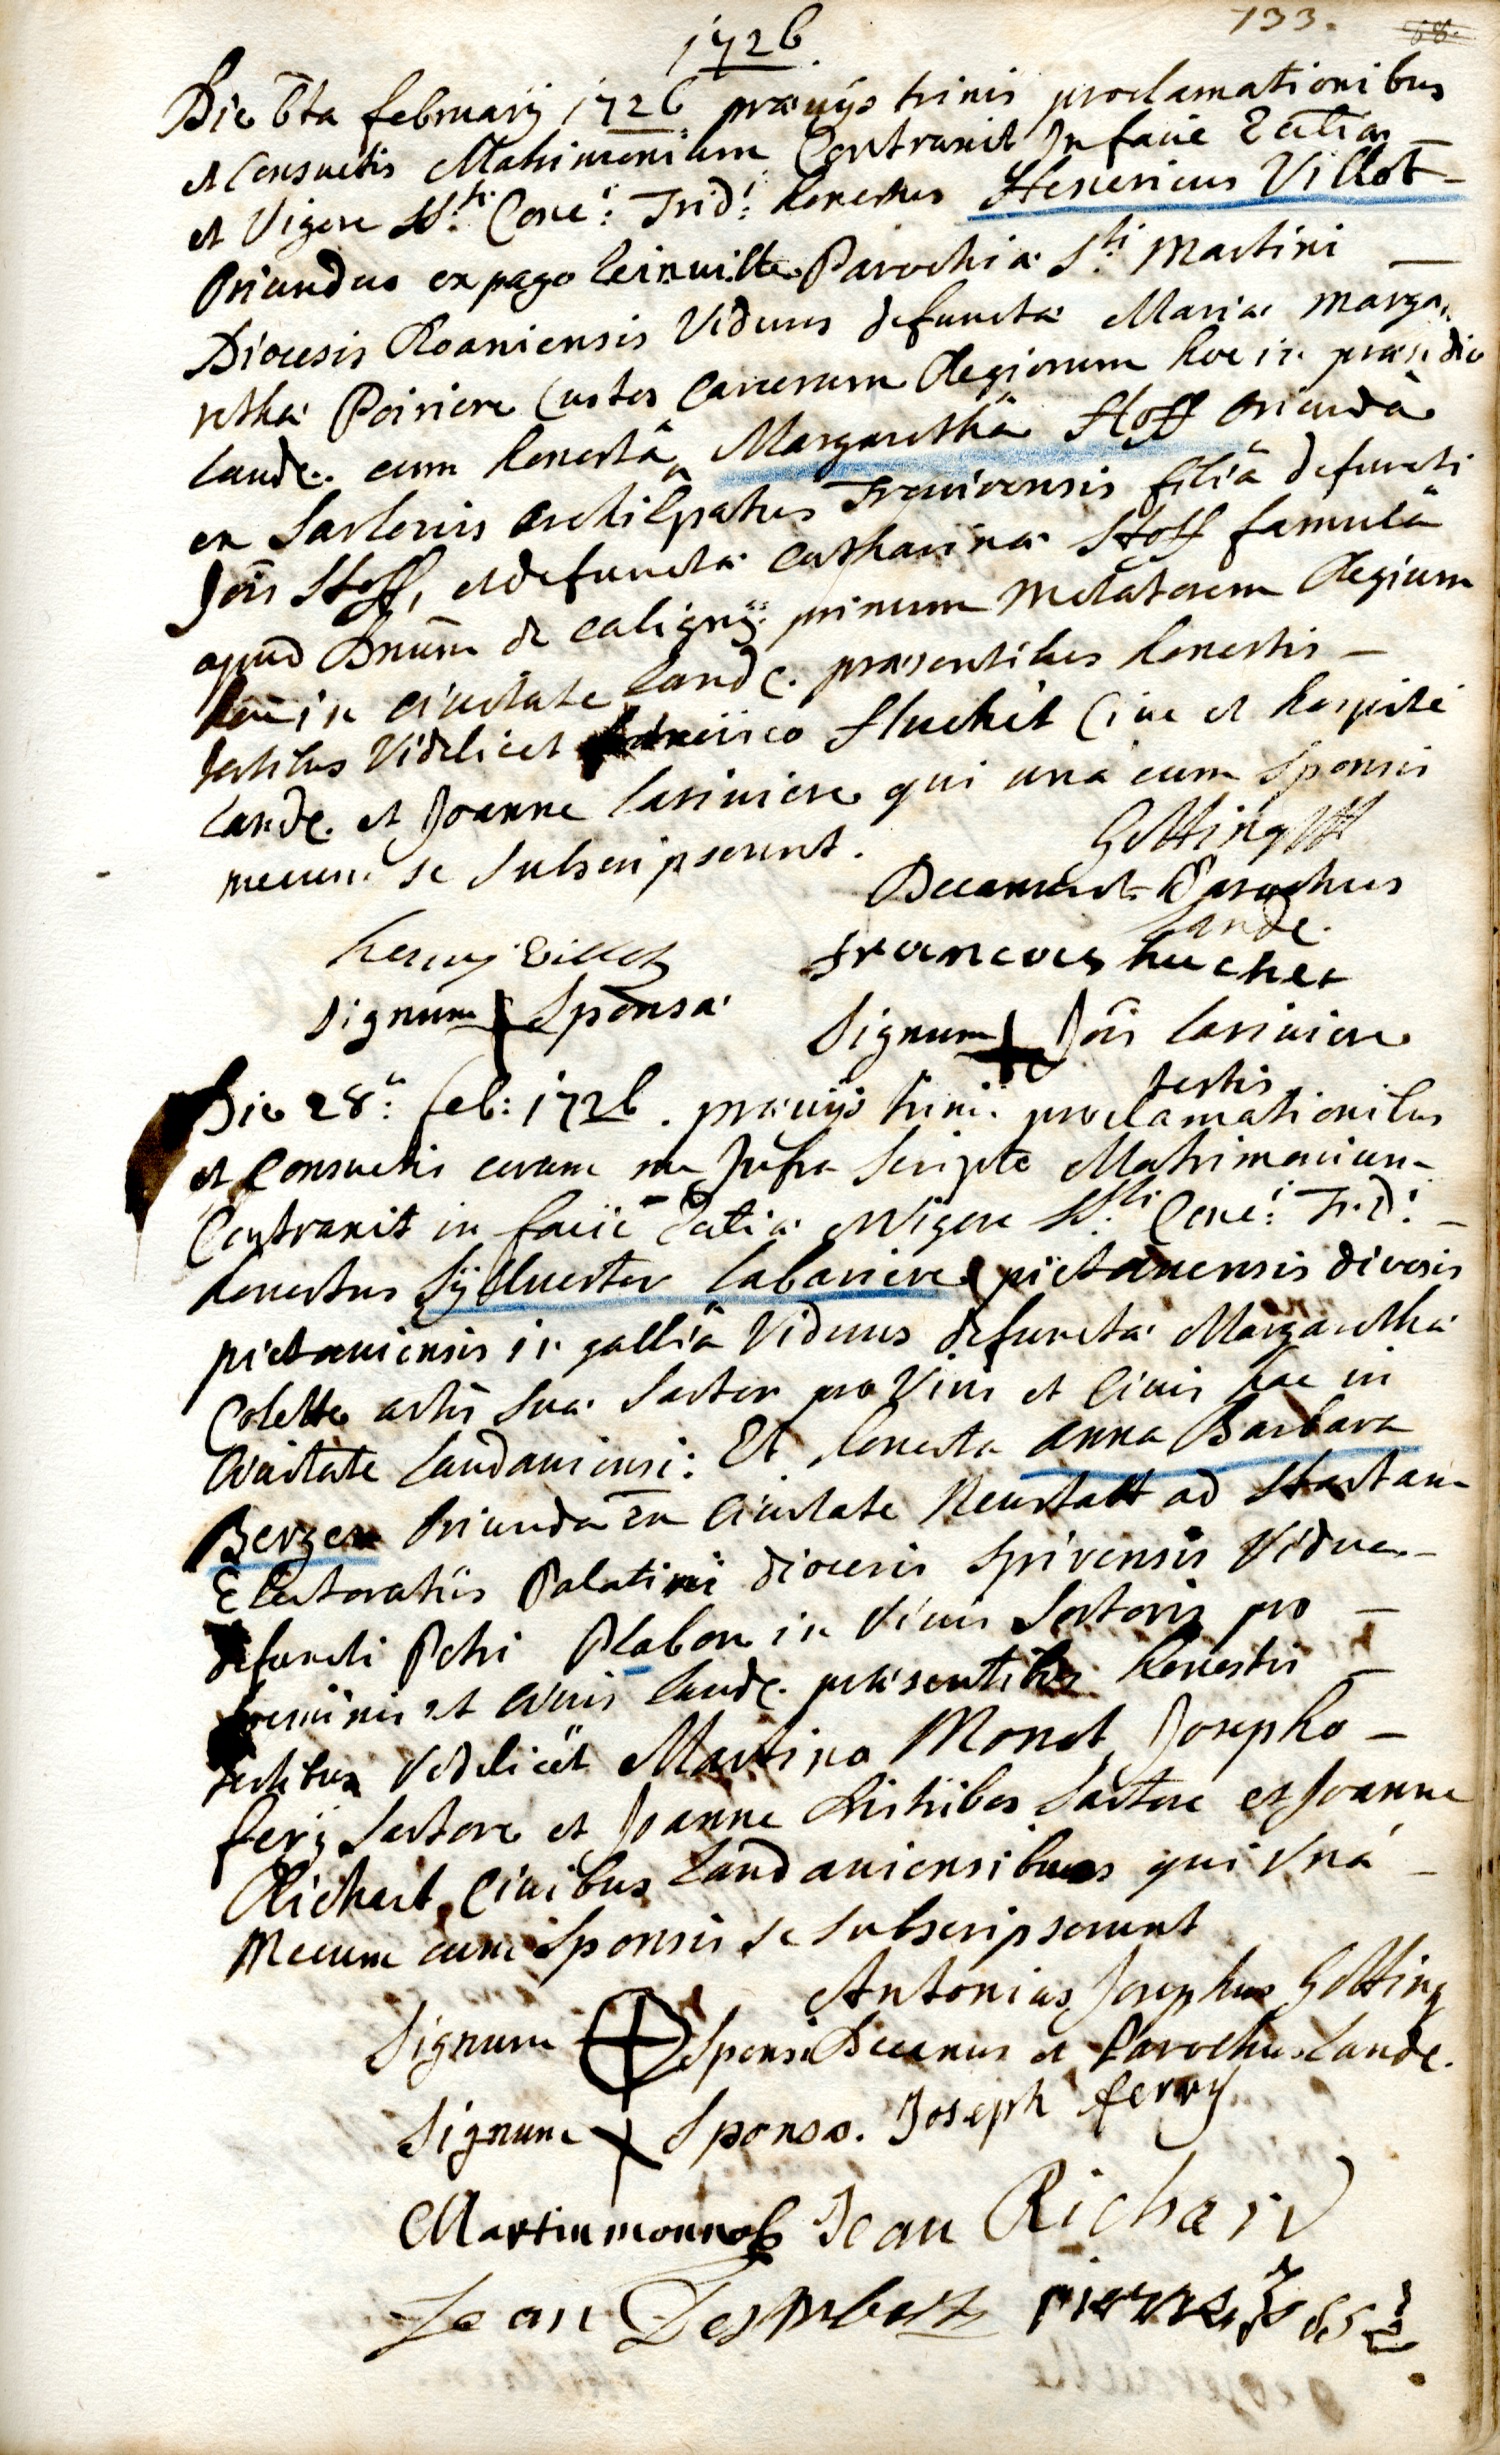 133. 68.
1726
Die 6ta february 1726 praeuijs trinis proclamationibus
et Consuetis Matrimonium Contraxit In facie Ecctiae
et Vigore SS.ti Conc:i Trid:i honestus Henericus Villot
Oriundus ex pago leinuille Parochiae S.ti Martini
Diocesis Roaniensis Viduus defunctae Mariae Marga
rethae Poiriere Custos Carcerum Regiorum hoc in praesidio
Landc. cum honestâ Margarethâ Hoff oriundâ
ex Sarlouis Archiepatus Treuirensis filiâ defuncti
Jois Hoff, et defunctae Catharinae Hoff famulâ
apud Dnum de Caligny primum Metatorem Regium
hac in Ciuitate Landc. praesentibus honestis
testibus Videlicet francisco Huchet Ciue et hospite
Landc. et Joanne lariuiere qui una cum Sponsis
mecum se Subscripserunt.
Gotting
Decanus et Parochus
Landc.
henry Villot francoies huchet
Signum + Sponsae Signum + Jois lariuiere
testis
Die 28.a feb: 1726. praeuijs trinis proclamationibus
et Consuetis coram me Infra Scripto Matrimonium
Contraxit in faciē Ecctiae et Vigore SS.ti Conc:i Trid:i
honestus Syluester labariere pictauensis diocesis
pictauiensis in galliâ Viduus defunctae Margarethae
Colette artis suae Sartor pro Viris et Ciuis hac in
Ciuitate Landauiensi: Et honesta Anna Barbara
Berger Oriunda ex Ciuitate Neustatt ad Hartam
Electoratûs Palatini diocesis Spirensis Vidua
defuncti Petri Plabon in Viuis Sartoris pro
foeminis et Ciuis Landc. praesentibus honestis
testibus Videlicet Martino Monet Josepho
fery Sartore et Joanne Sartore et Joanne
Richart Ciuibus Landauiensibus qui Vnâ
Mecum cum Sponsis se Subscripserunt
Antonius Josephus Gotting
Signum Sponsi Decanus et Parochus Landc.
Signum + Sponsae. Joseph ferry
Martin monnet Jean Richard
Jean pierre